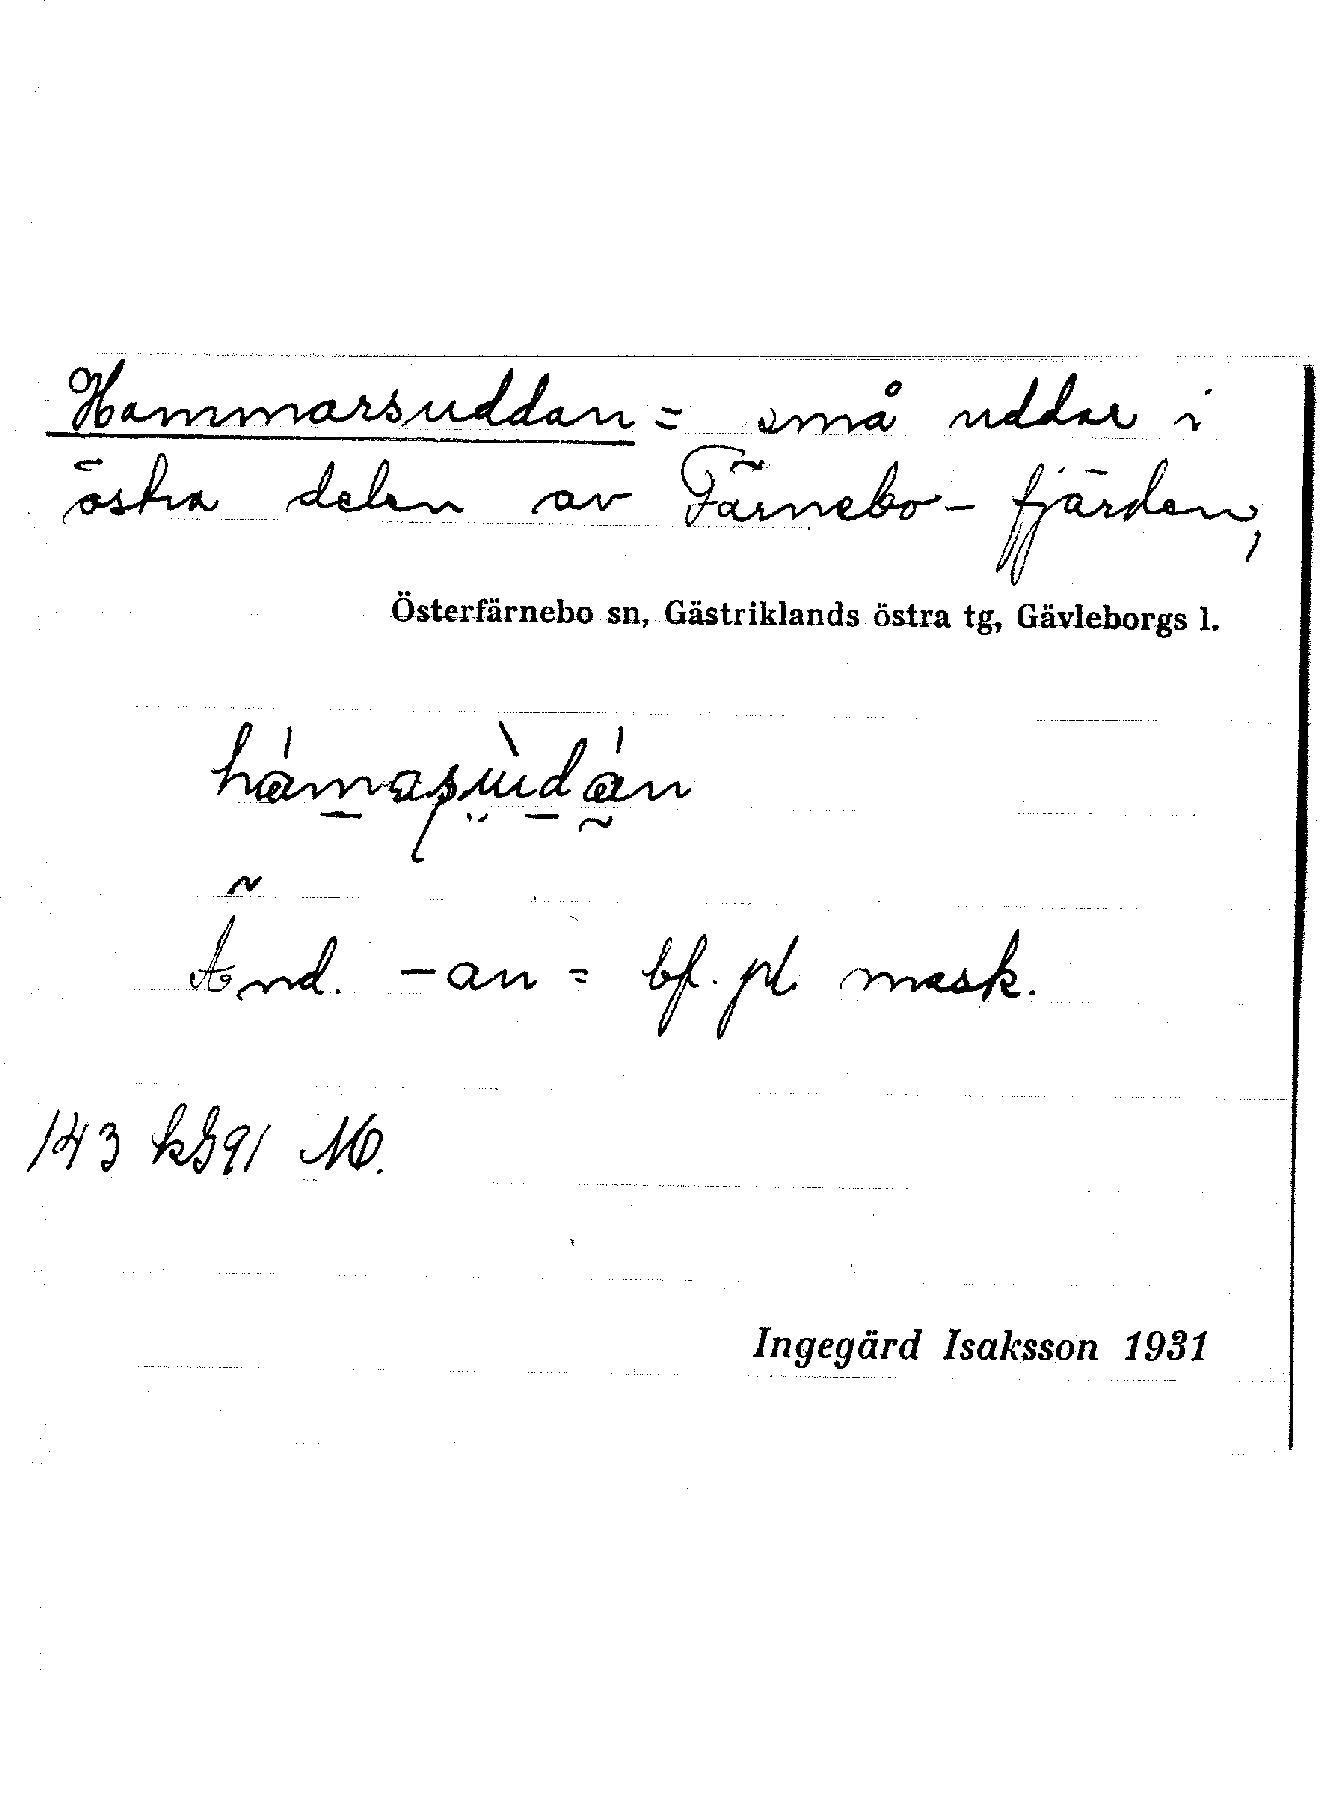 Hammarsuddan = små uddar i
östra delen av Färnebo-fjärden,
Österfärnebo sn, Gästriklands östra tg, Gävleborgs l.
Änd. -an = bf. pl. mask.
143
Ingegärd Isaksson 1931